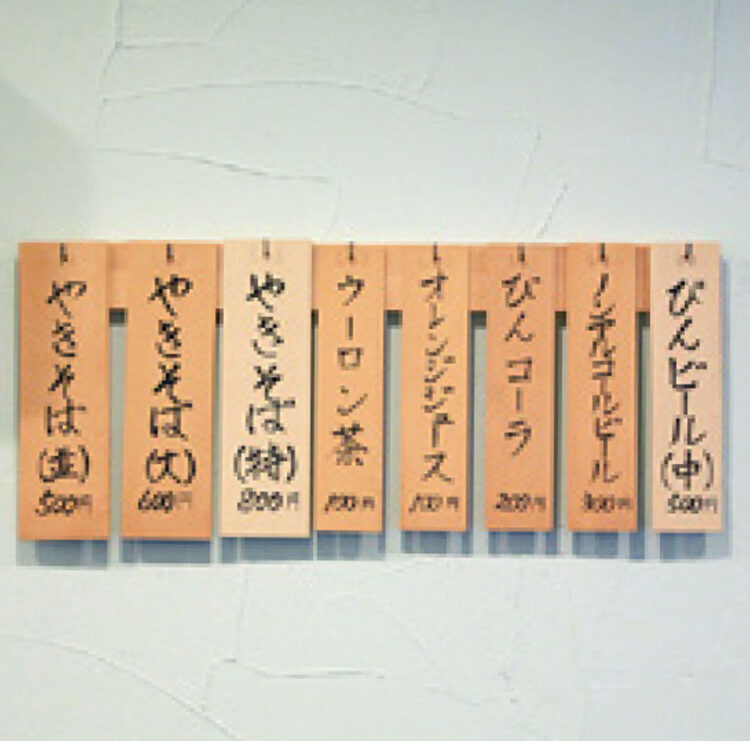 やきそば(並)
500円
やきそば(大)
600円
やきそば(特)
800円
ウーロン茶
100円
オレンジジュース
100円
びんコーラ
200円
ノンアルコールビール
300円
びんビール(中)
500円